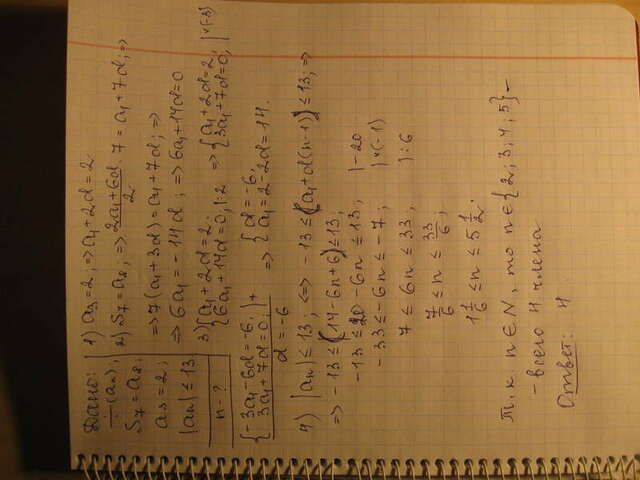 Дано:
÷(aₙ);
S₇ = a₈;
a₃ = 2;
|aₙ| ≤ 13
n - ?
1) a₃ = 2; ⇒ a₁ + 2d = 2.
2) S₇ = a₈; ⇒ (2a₁ + 6d)/2 · 7 = a₁ + 7d; ⇒
⇒ 7(a₁ + 3d) = a₁ + 7d; ⇒
⇒ 6a₁ = -14d; ⇒ 6a₁ + 14d = 0
3) { a₁ + 2d = 2; ⇒ { a₁ + 2d = 2; | ×(-3)
{ 6a₁ + 14d = 0, |:2 { 3a₁ + 7d = 0;
{ -3a₁ - 6d = -6; | +
{ 3a₁ + 7d = 0; ⇒ { d = -6;
d = -6 { a₁ = 2 - 2d = 14.
4) |aₙ| ≤ 13; ⇔ -13 ≤ (a₁ + d(n-1)) ≤ 13; ⇒
⇒ -13 ≤ (14 - 6n + 6) ≤ 13;
-13 ≤ 20 - 6n ≤ 13; | -20
-33 ≤ -6n ≤ -7; | ×(-1)
7 ≤ 6n ≤ 33; | :6
7/6 ≤ n ≤ 33/6;
1 1/6 ≤ n ≤ 5 1/2.
Т.к. n ∈ N, то n ∈ {2; 3; 4; 5} -
- всего 4 члена
Ответ: 4